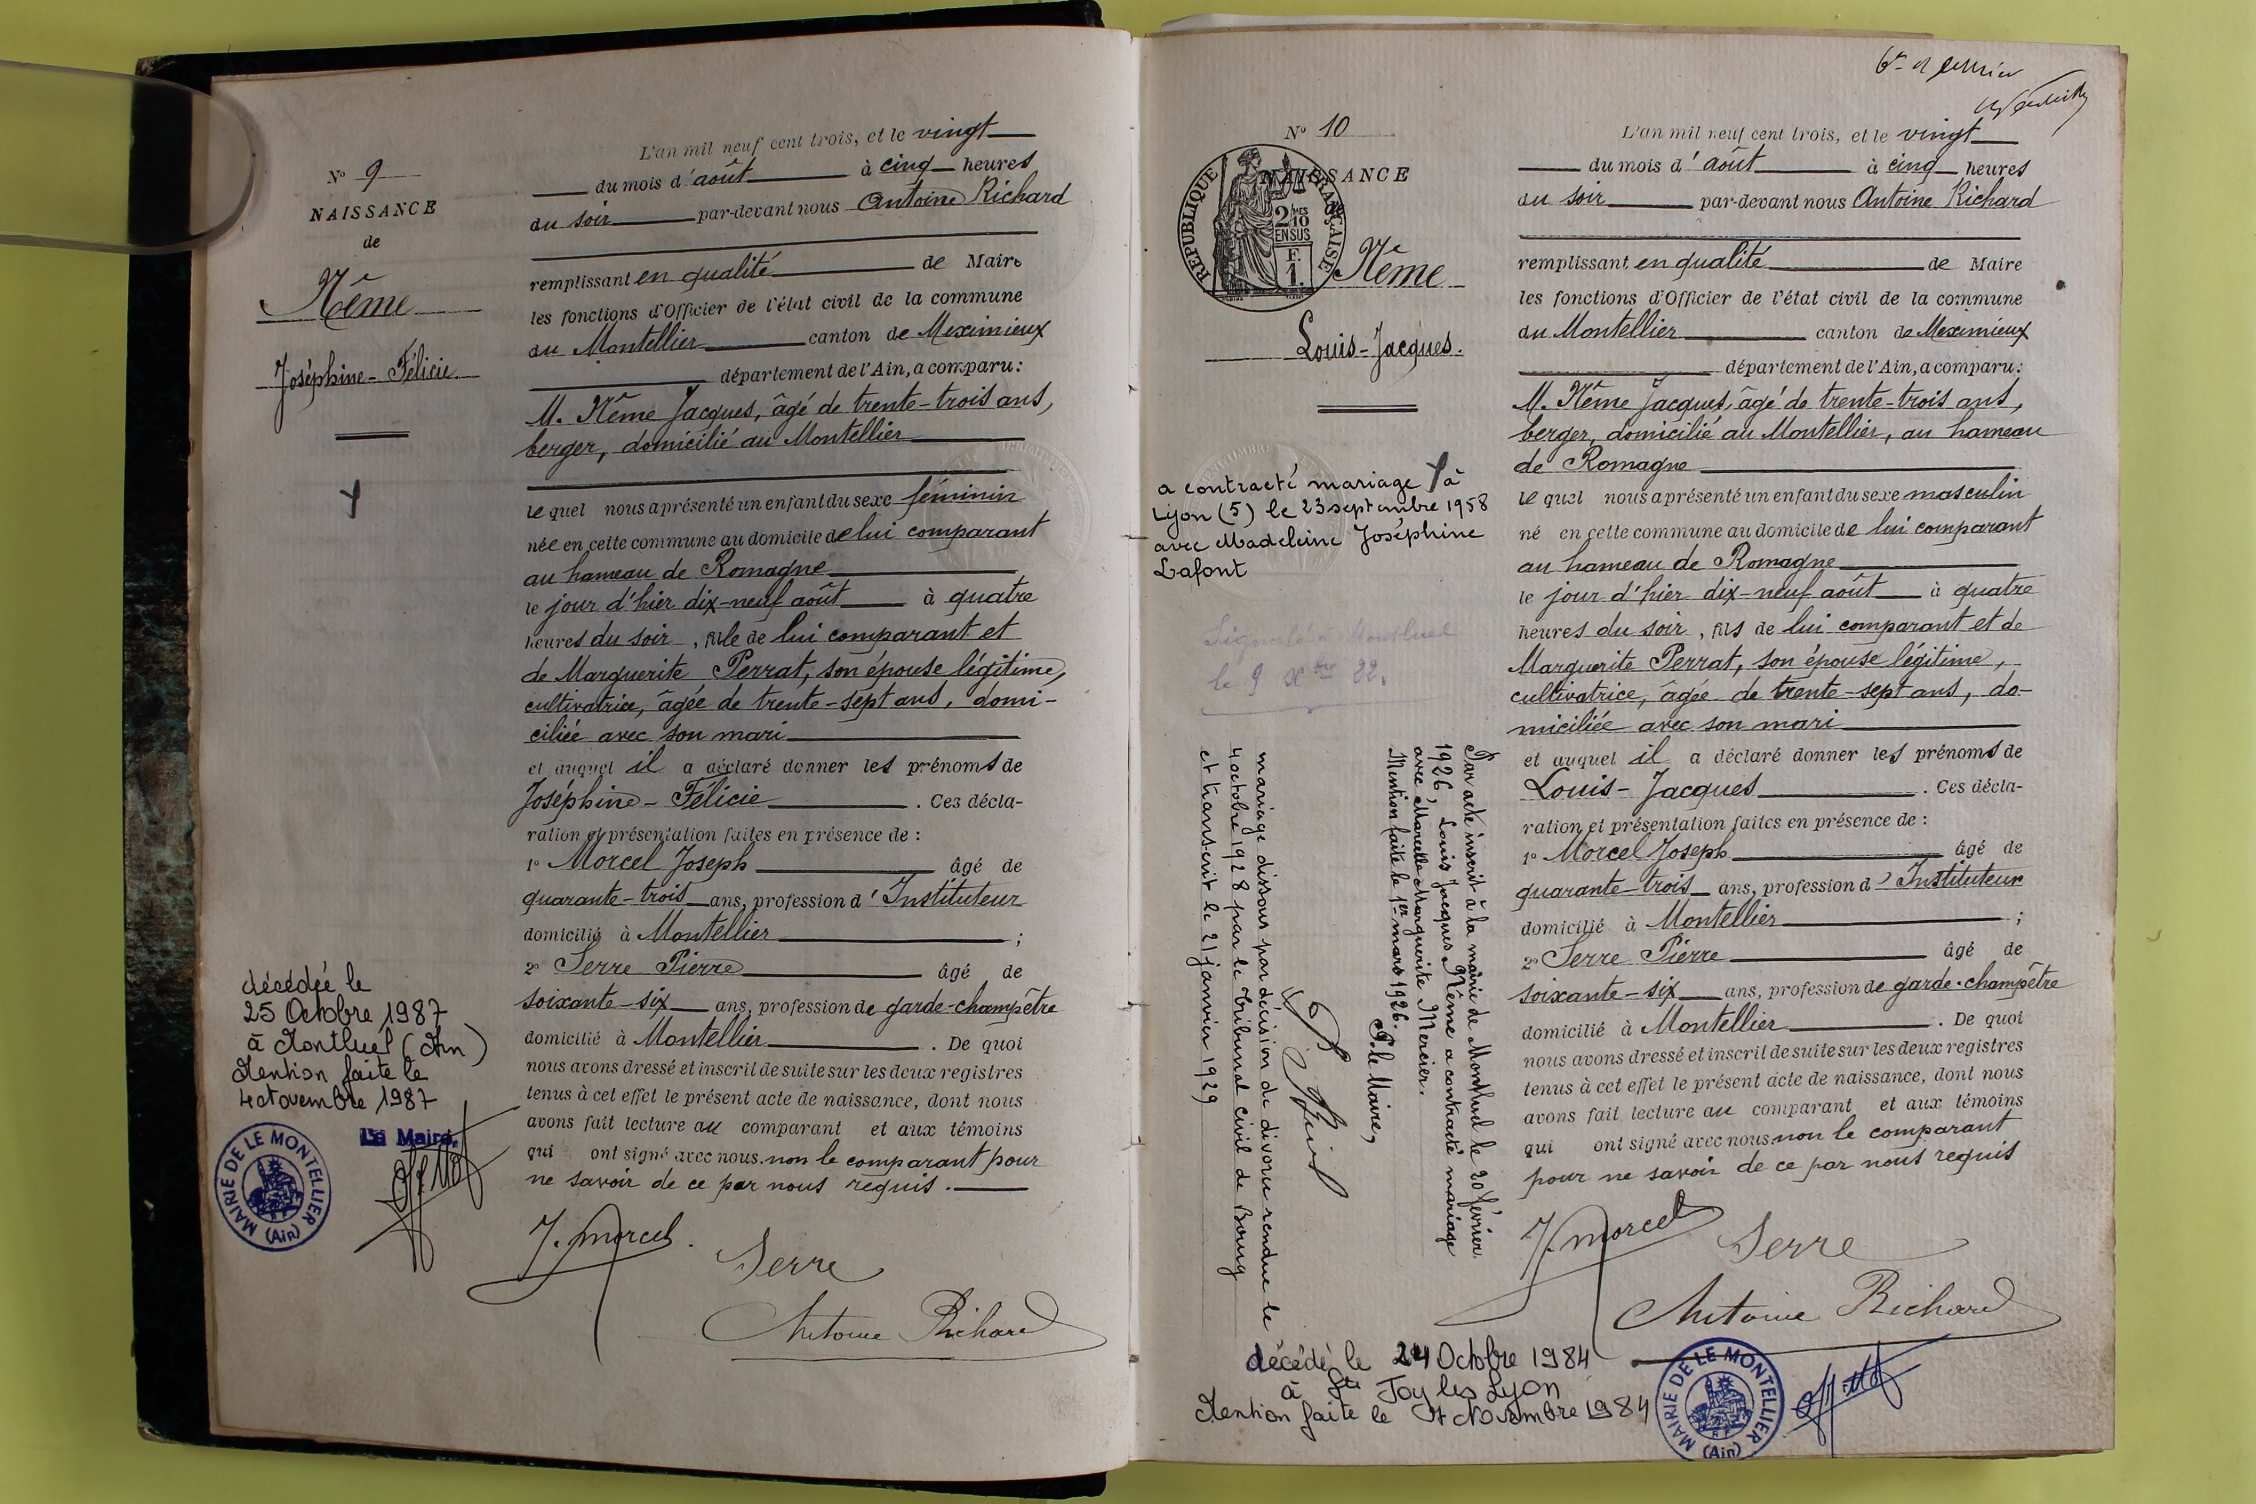 N° 9
NAISSANCE
de
Nême
Joséphine-Félicie
décédée le
25 Octobre 1987
à Montluel (Ain)
Mention faite le
4 Novembre 1987
Le Maire,
MAIRIE DE LE MONTELLIER
(Ain)
L'an mil neuf cent trois, et le vingt
du mois d'août à cinq heures
du soir par-devant nous Antoine Richard
remplissant en qualité de Maire
les fonctions d'Officier de l'état civil de la commune
du Montellier canton de Meximieux
département de l'Ain, a comparu :
M. Nême Jacques, âgé de trente-trois ans,
berger, domicilié au Montellier
le quel nous a présenté un enfant du sexe féminin
née en cette commune au domicile de lui comparant
au hameau de Romagne
le jour d'hier dix-neuf août à quatre
heures du soir, fille de lui comparant et
de Marguerite Perrat, son épouse légitime,
cultivatrice, âgée de trente-sept ans, domi-
ciliée avec son mari
et auquel il a déclaré donner les prénoms de
Joséphine-Félicie . Ces décla-
ration et présentation faites en présence de :
1° Morcel Joseph âgé de
quarante-trois ans, profession d'Instituteur
domicilié à Montellier ;
2° Serre Pierre âgé de
soixante-six ans, profession de garde-champêtre
domicilié à Montellier . De quoi
nous avons dressé et inscrit de suite sur les deux registres
tenus à cet effet le présent acte de naissance, dont nous
avons fait lecture au comparant et aux témoins
qui ont signé avec nous non le comparant pour
ne savoir de ce par nous requis.
J. Morcel.
Serre
Antoine Richard
N° 10
NAISSANCE
RÉPUBLIQUE FRANÇAISE
2/10
EN SUS
F.
1.
Nême
Louis-Jacques.
a contracté mariage à
Lyon (5) le 23 septembre 1958
avec Madeleine Joséphine
Lafont
Signalé à Montluel
le 9 Xbre 22.
Par acte inscrit à la mairie de Montluel le 20 février
1926, Louis Jacques Nême a contracté mariage
avec Marcelle Marguerite Mercier.
Mention faite le 1er mars 1926. P. le Maire,
mariage dissous par décision de divorce rendue le
4 octobre 1928 par le tribunal civil de Bourg
et transcrit le 21 janvier 1929
décédé le 24 Octobre 1984
à Ste Foy les Lyon
Mention faite le Novembre 1984
MAIRIE DE LE MONTELLIER
(Ain)
6e et dernier
L'an mil neuf cent trois, et le vingt
du mois d'août à cinq heures
du soir par-devant nous Antoine Richard
remplissant en qualité de Maire
les fonctions d'Officier de l'état civil de la commune
du Montellier canton de Meximieux
département de l'Ain, a comparu :
M. Nême Jacques, âgé de trente-trois ans,
berger, domicilié au Montellier, au hameau
de Romagne
le quel nous a présenté un enfant du sexe masculin
né en cette commune au domicile de lui comparant
au hameau de Romagne
le jour d'hier dix-neuf août à quatre
heures du soir, fils de lui comparant et de
Marguerite Perrat, son épouse légitime,
cultivatrice, âgée de trente-sept ans, do-
miciliée avec son mari
et auquel il a déclaré donner les prénoms de
Louis-Jacques . Ces décla-
ration et présentation faites en présence de :
1° Morcel Joseph âgé de
quarante-trois ans, profession d'Instituteur
domicilié à Montellier ;
2° Serre Pierre âgé de
soixante-six ans, profession de garde-champêtre
domicilié à Montellier . De quoi
nous avons dressé et inscrit de suite sur les deux registres
tenus à cet effet le présent acte de naissance, dont nous
avons fait lecture au comparant et aux témoins
qui ont signé avec nous non le comparant
pour ne savoir de ce par nous requis
J. Morcel
Serre
Antoine Richard